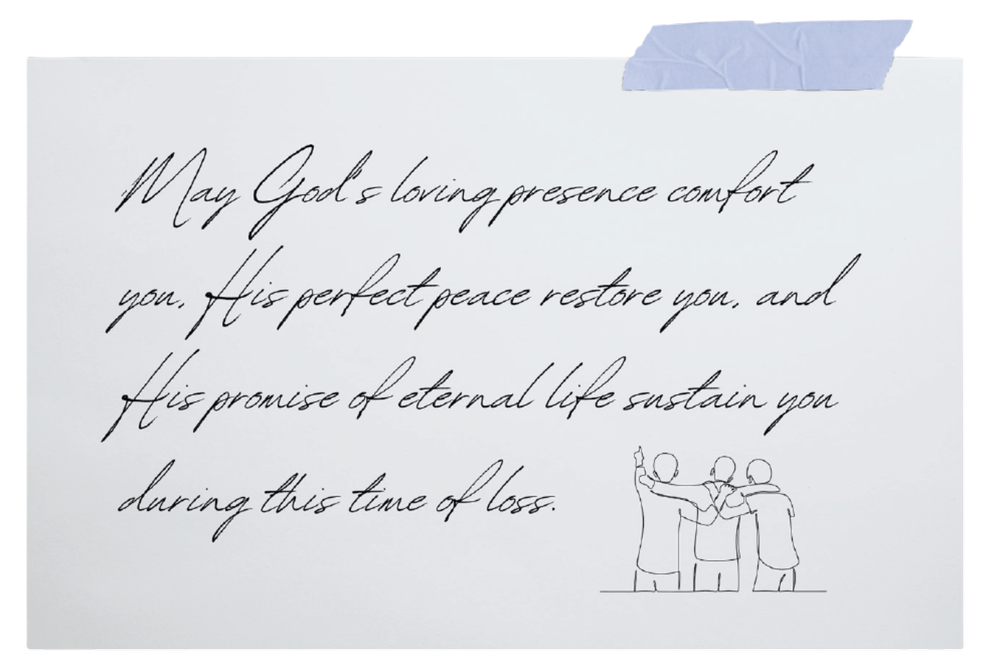 May God's loving presence comfort
you, His perfect peace restore you, and
His promise of eternal life sustain you
during this time of loss.